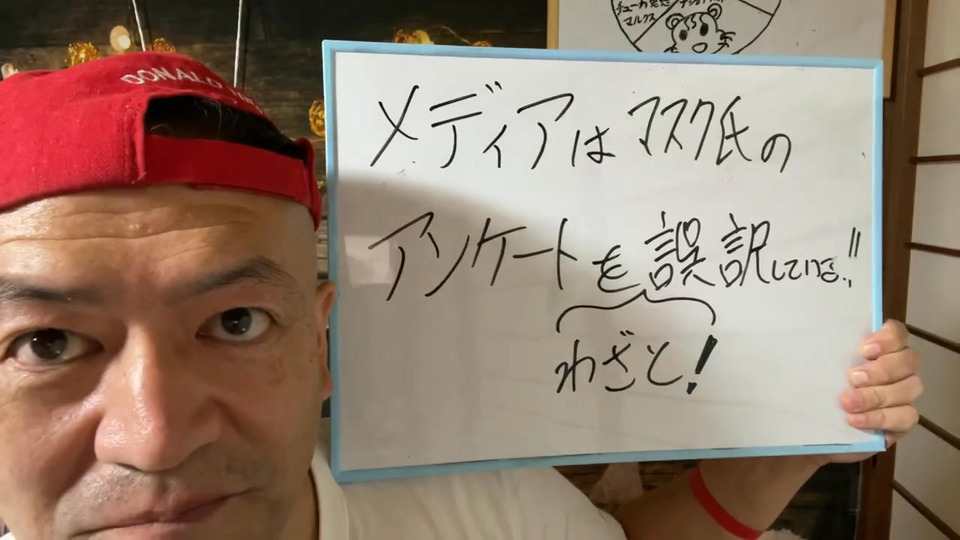 チューカ
マルクス
DONALD
メディアはマスク氏の
アンケートを誤訳している!!
わざと!